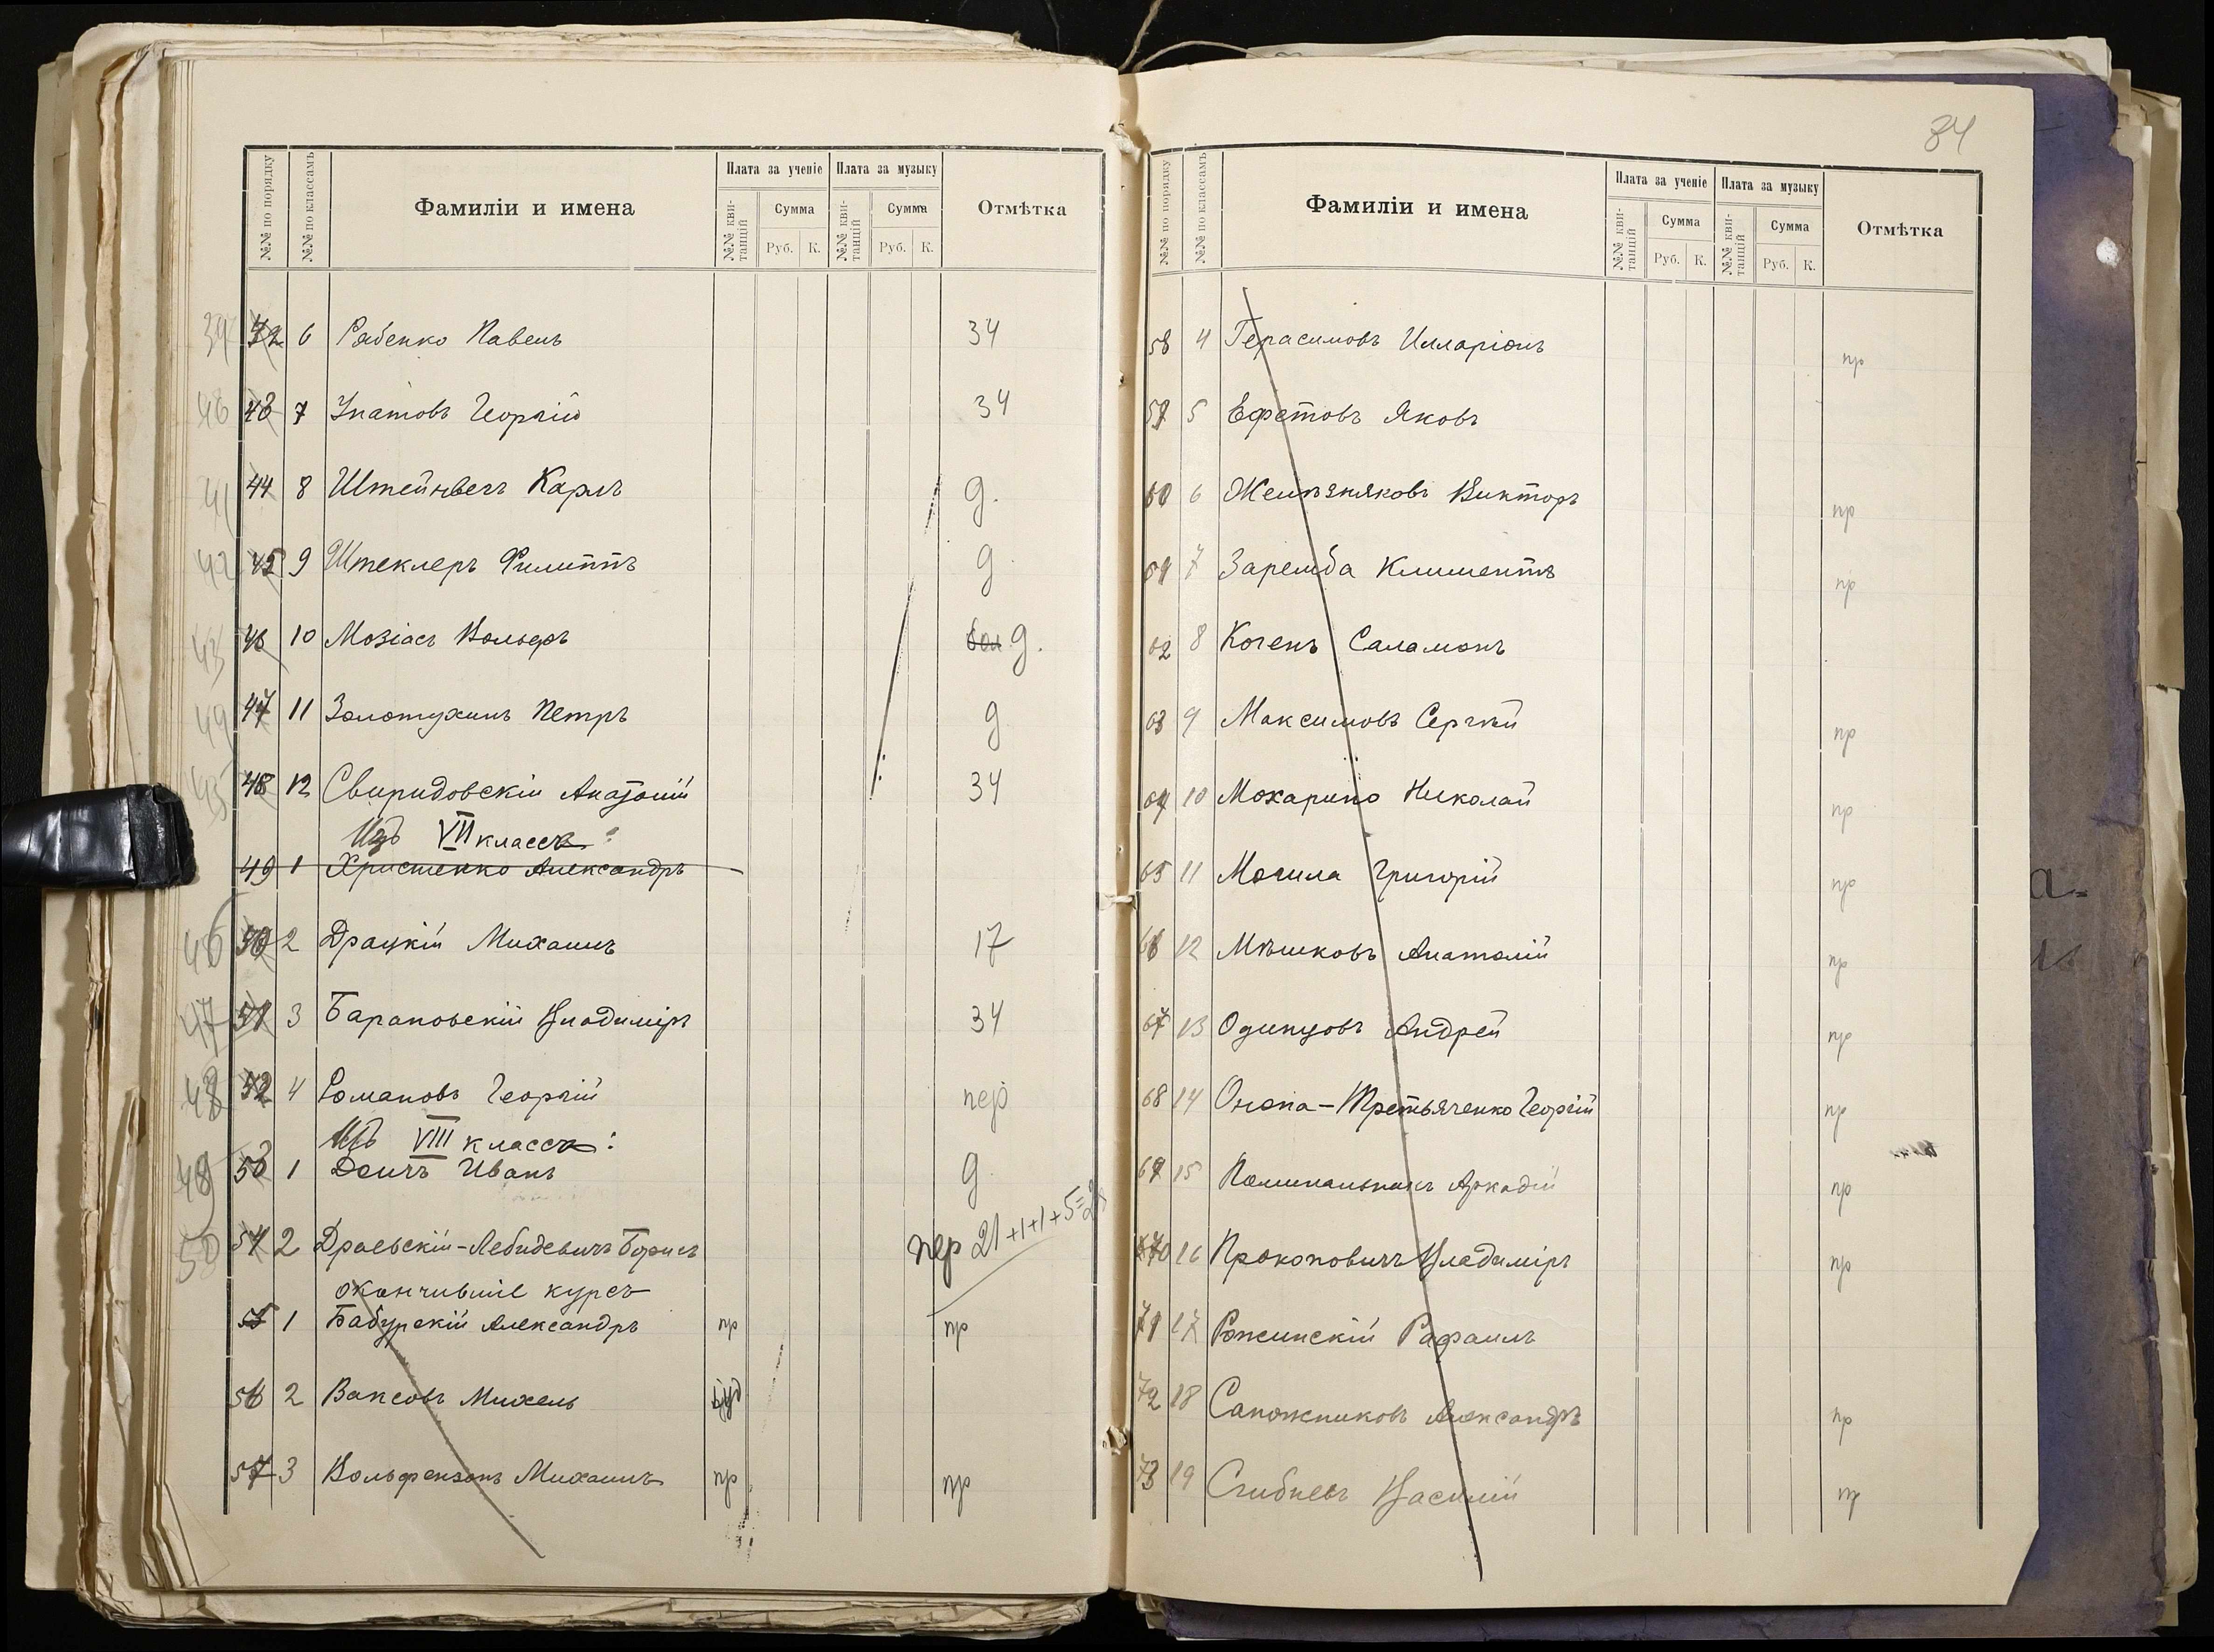 №№ по порядку №№ по классамъ Фамиліи и имена Плата за ученіе Плата за музыку Отмѣтка
№№ кви-танцій Сумма №№ кви-танцій Сумма
Руб. К. Руб. К.
39 42 6 Рабенко Павелъ 34
40 43 7 Упатовъ Георгій 34
41 44 8 Штейнвегъ Карлъ д.
42 45 9 Штеклеръ Филиппъ д
43 46 10 Мозіасъ Вольфъ д.
47 11 Золотухинъ Петръ д
45 48 12 Свиридовскій Анатолій 34
Изъ VII класса:
49 1 Христенко Александръ
46 50 2 Драцкій Михаилъ 17
47 51 3 Барановскій Владиміръ 34
48 52 4 Романовъ Георгій пер
Изъ VIII класса:
49 53 1 Деичъ Иванъ д
50 54 2 Драевскій-Лебидевичъ Борисъ пер 21+1+1+5=
окончившіе курсъ
55 1 Бабурскій Александръ пр пр
56 2 Ваксовъ Михель
57 3 Вольфензонъ Михаилъ пр пр
34
№№ по порядку №№ по классамъ Фамиліи и имена Плата за ученіе Плата за музыку Отмѣтка
№№ кви-танцій Сумма №№ кви-танцій Сумма
Руб. К. Руб. К.
58 4 Герасимовъ Илларіонъ пр
59 5 Ефетовъ Яковъ
60 6 Желѣзняковъ Викторъ пр
61 7 Заремба Климентъ пр
62 8 Когенъ Саламонъ
63 9 Максимовъ Сергѣй пр
64 10 Мохарино Николай пр
65 11 Могила Григорій пр
66 12 Мѣшковъ Анатолій пр
67 13 Одинцовъ Андрей пр
68 14 Онопа-Третьяченко Георгій пр
69 15 Аркадій пр
70 16 Прокоповичъ Владиміръ пр
71 17 Рожинскій Рафаилъ
72 18 Сапожниковъ Александръ пр
73 19 Сгибневъ Василій пр